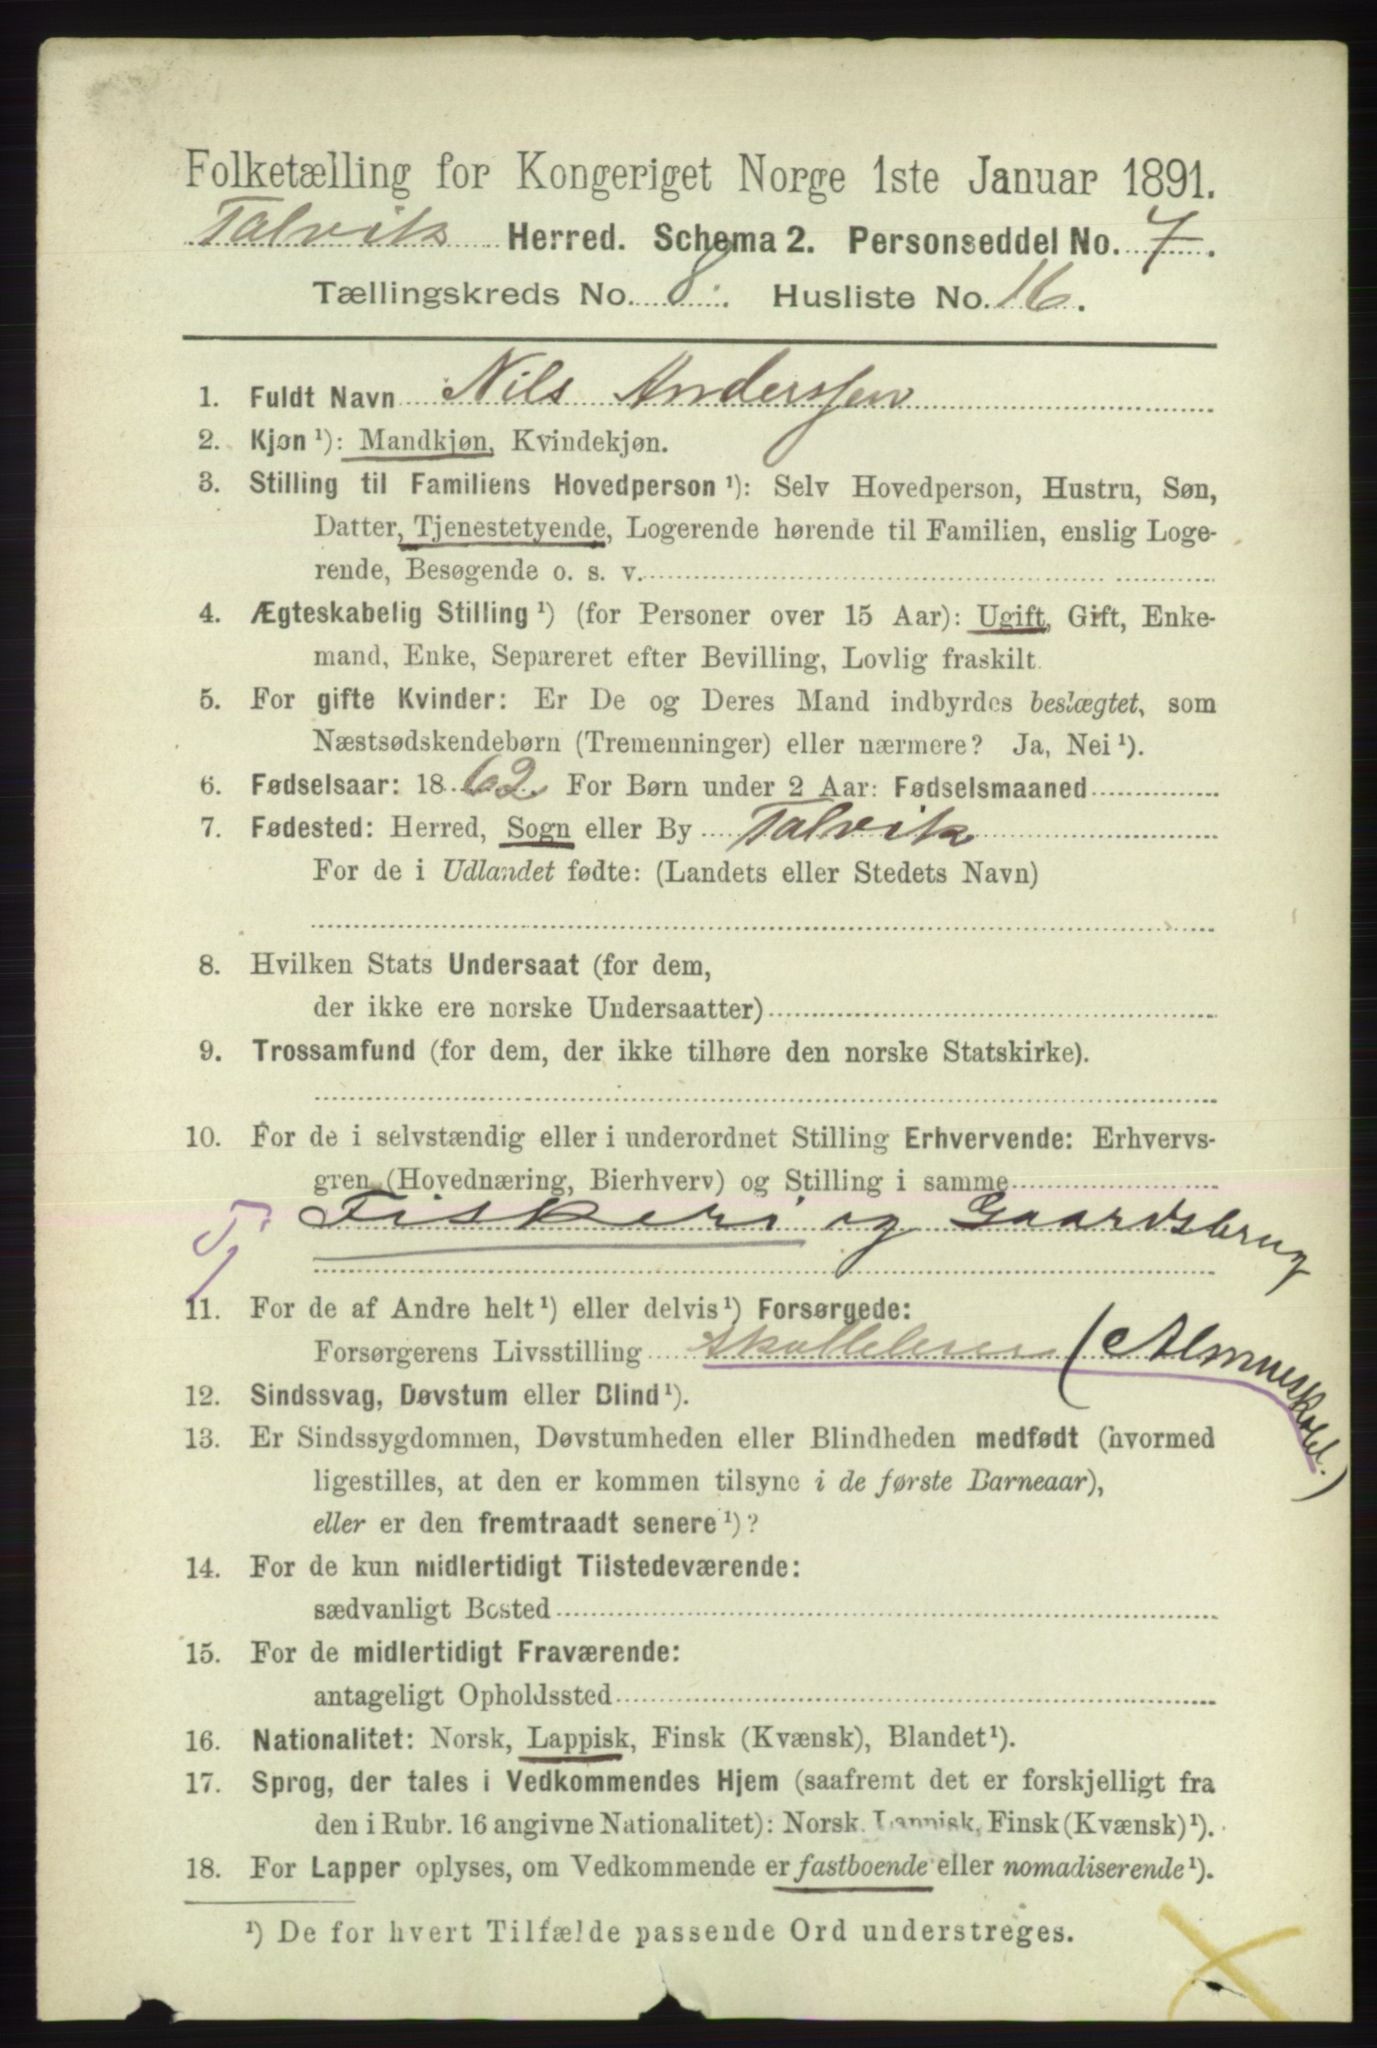 Folketælling for Kongeriget Norge 1ste Januar 1891.
Talvik Herred. Schema 2. Personseddel No. 7.
Tællingskreds No. 8. Husliste No. 16.
1. Fuldt Navn Nils Anderssen
2. Kjøn ¹): Mandkjøn, Kvindekjøn.
3. Stilling til Familiens Hovedperson ¹): Selv Hovedperson, Hustru, Søn,
Datter, Tjenestetyende, Logerende hørende til Familien, enslig Loge-
rende, Besøgende o. s. v.
4. Ægteskabelig Stilling ¹) (for Personer over 15 Aar): Ugift, Gift, Enke-
mand, Enke, Separeret efter Bevilling, Lovlig fraskilt.
5. For gifte Kvinder: Er De og Deres Mand indbyrdes beslægtet, som
Næstsødskendebørn (Tremenninger) eller nærmere? Ja, Nei ¹).
6. Fødselsaar: 1862 For Børn under 2 Aar: Fødselsmaaned
7. Fødested: Herred, Sogn eller By Talvik
For de i Udlandet fødte: (Landets eller Stedets Navn)
8. Hvilken Stats Undersaat (for dem,
der ikke ere norske Undersaatter)
9. Trossamfund (for dem, der ikke tilhøre den norske Statskirke).
10. For de i selvstændig eller i underordnet Stilling Erhvervende: Erhvervs-
gren (Hovednæring, Bierhverv) og Stilling i samme
Tj Fiskeri og Gaardsbrug
11. For de af Andre helt ¹) eller delvis ¹) Forsørgede:
Forsørgerens Livsstilling
12. Sindssvag, Døvstum eller Blind ¹).
13. Er Sindssygdommen, Døvstumheden eller Blindheden medfødt (hvormed
ligestilles, at den er kommen tilsyne i de første Barneaar),
eller er den fremtraadt senere ¹)?
14. For de kun midlertidigt Tilstedeværende:
sædvanligt Bosted
15. For de midlertidigt Fraværende:
antageligt Opholdssted
16. Nationalitet: Norsk, Lappisk, Finsk (Kvænsk), Blandet ¹).
17. Sprog, der tales i Vedkommendes Hjem (saafremt det er forskjelligt fra
den i Rubr. 16 angivne Nationalitet): Norsk, Lappisk, Finsk (Kvænsk) ¹).
18. For Lapper oplyses, om Vedkommende er fastboende eller nomadiserende ¹).
¹) De for hvert Tilfælde passende Ord understreges.